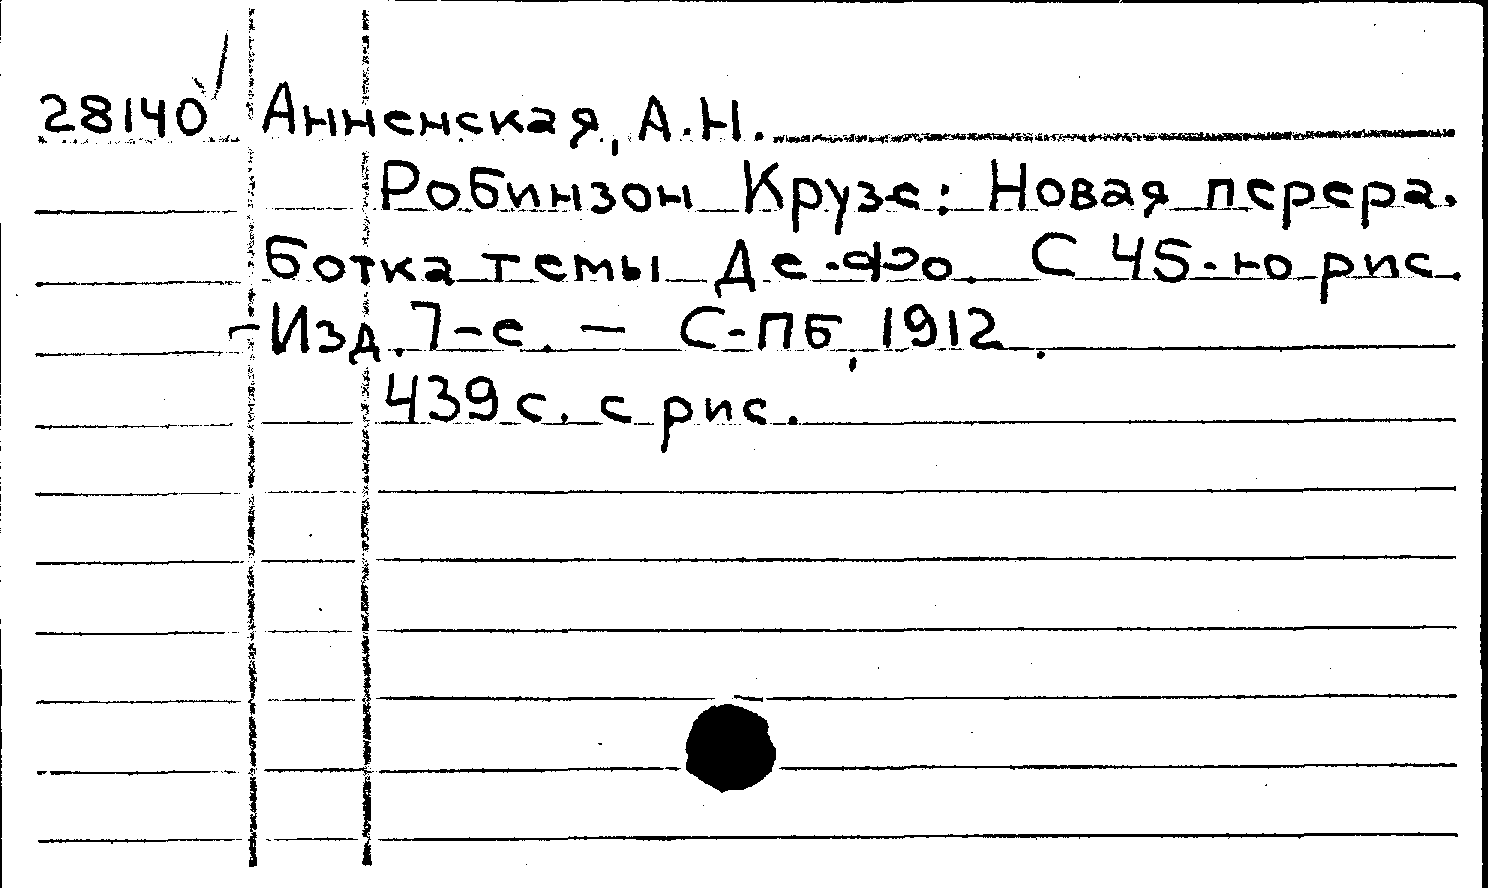 28140 Анненская, А.Н.
Робинзон Крузе: Новая перера.
ботка темы Де-Фо. С 45-ю рис.
-Изд. 7-е. — С-ПБ, 1912.
439 с. с рис.